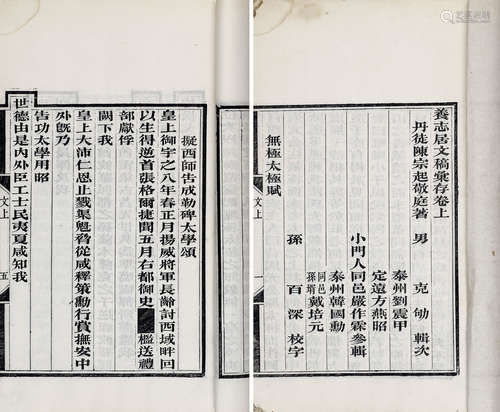 養志居文稿彙存卷上
丹徒陳宗起敬庭著
男 克劬輯次
泰州劉震甲
定遠方燕昭
小門人同邑嚴作霖參輯
泰州韓國勳
同邑戴培元
孫壻
孫 百深校字
無極太極賦
文上
擬西師告成勒碑太學頌
皇上御宇之八年春正月揚威將軍長齡討西域畔回
以生得逆首張格爾捷聞五月右都御史■檻送禮
部獻俘
闕下我
皇上大沛仁恩止戮渠魁脅從咸釋策勳行賞撫安中
外旣乃
告功太學用昭
世德由是內外臣工士民夷夏咸知我
文上
五